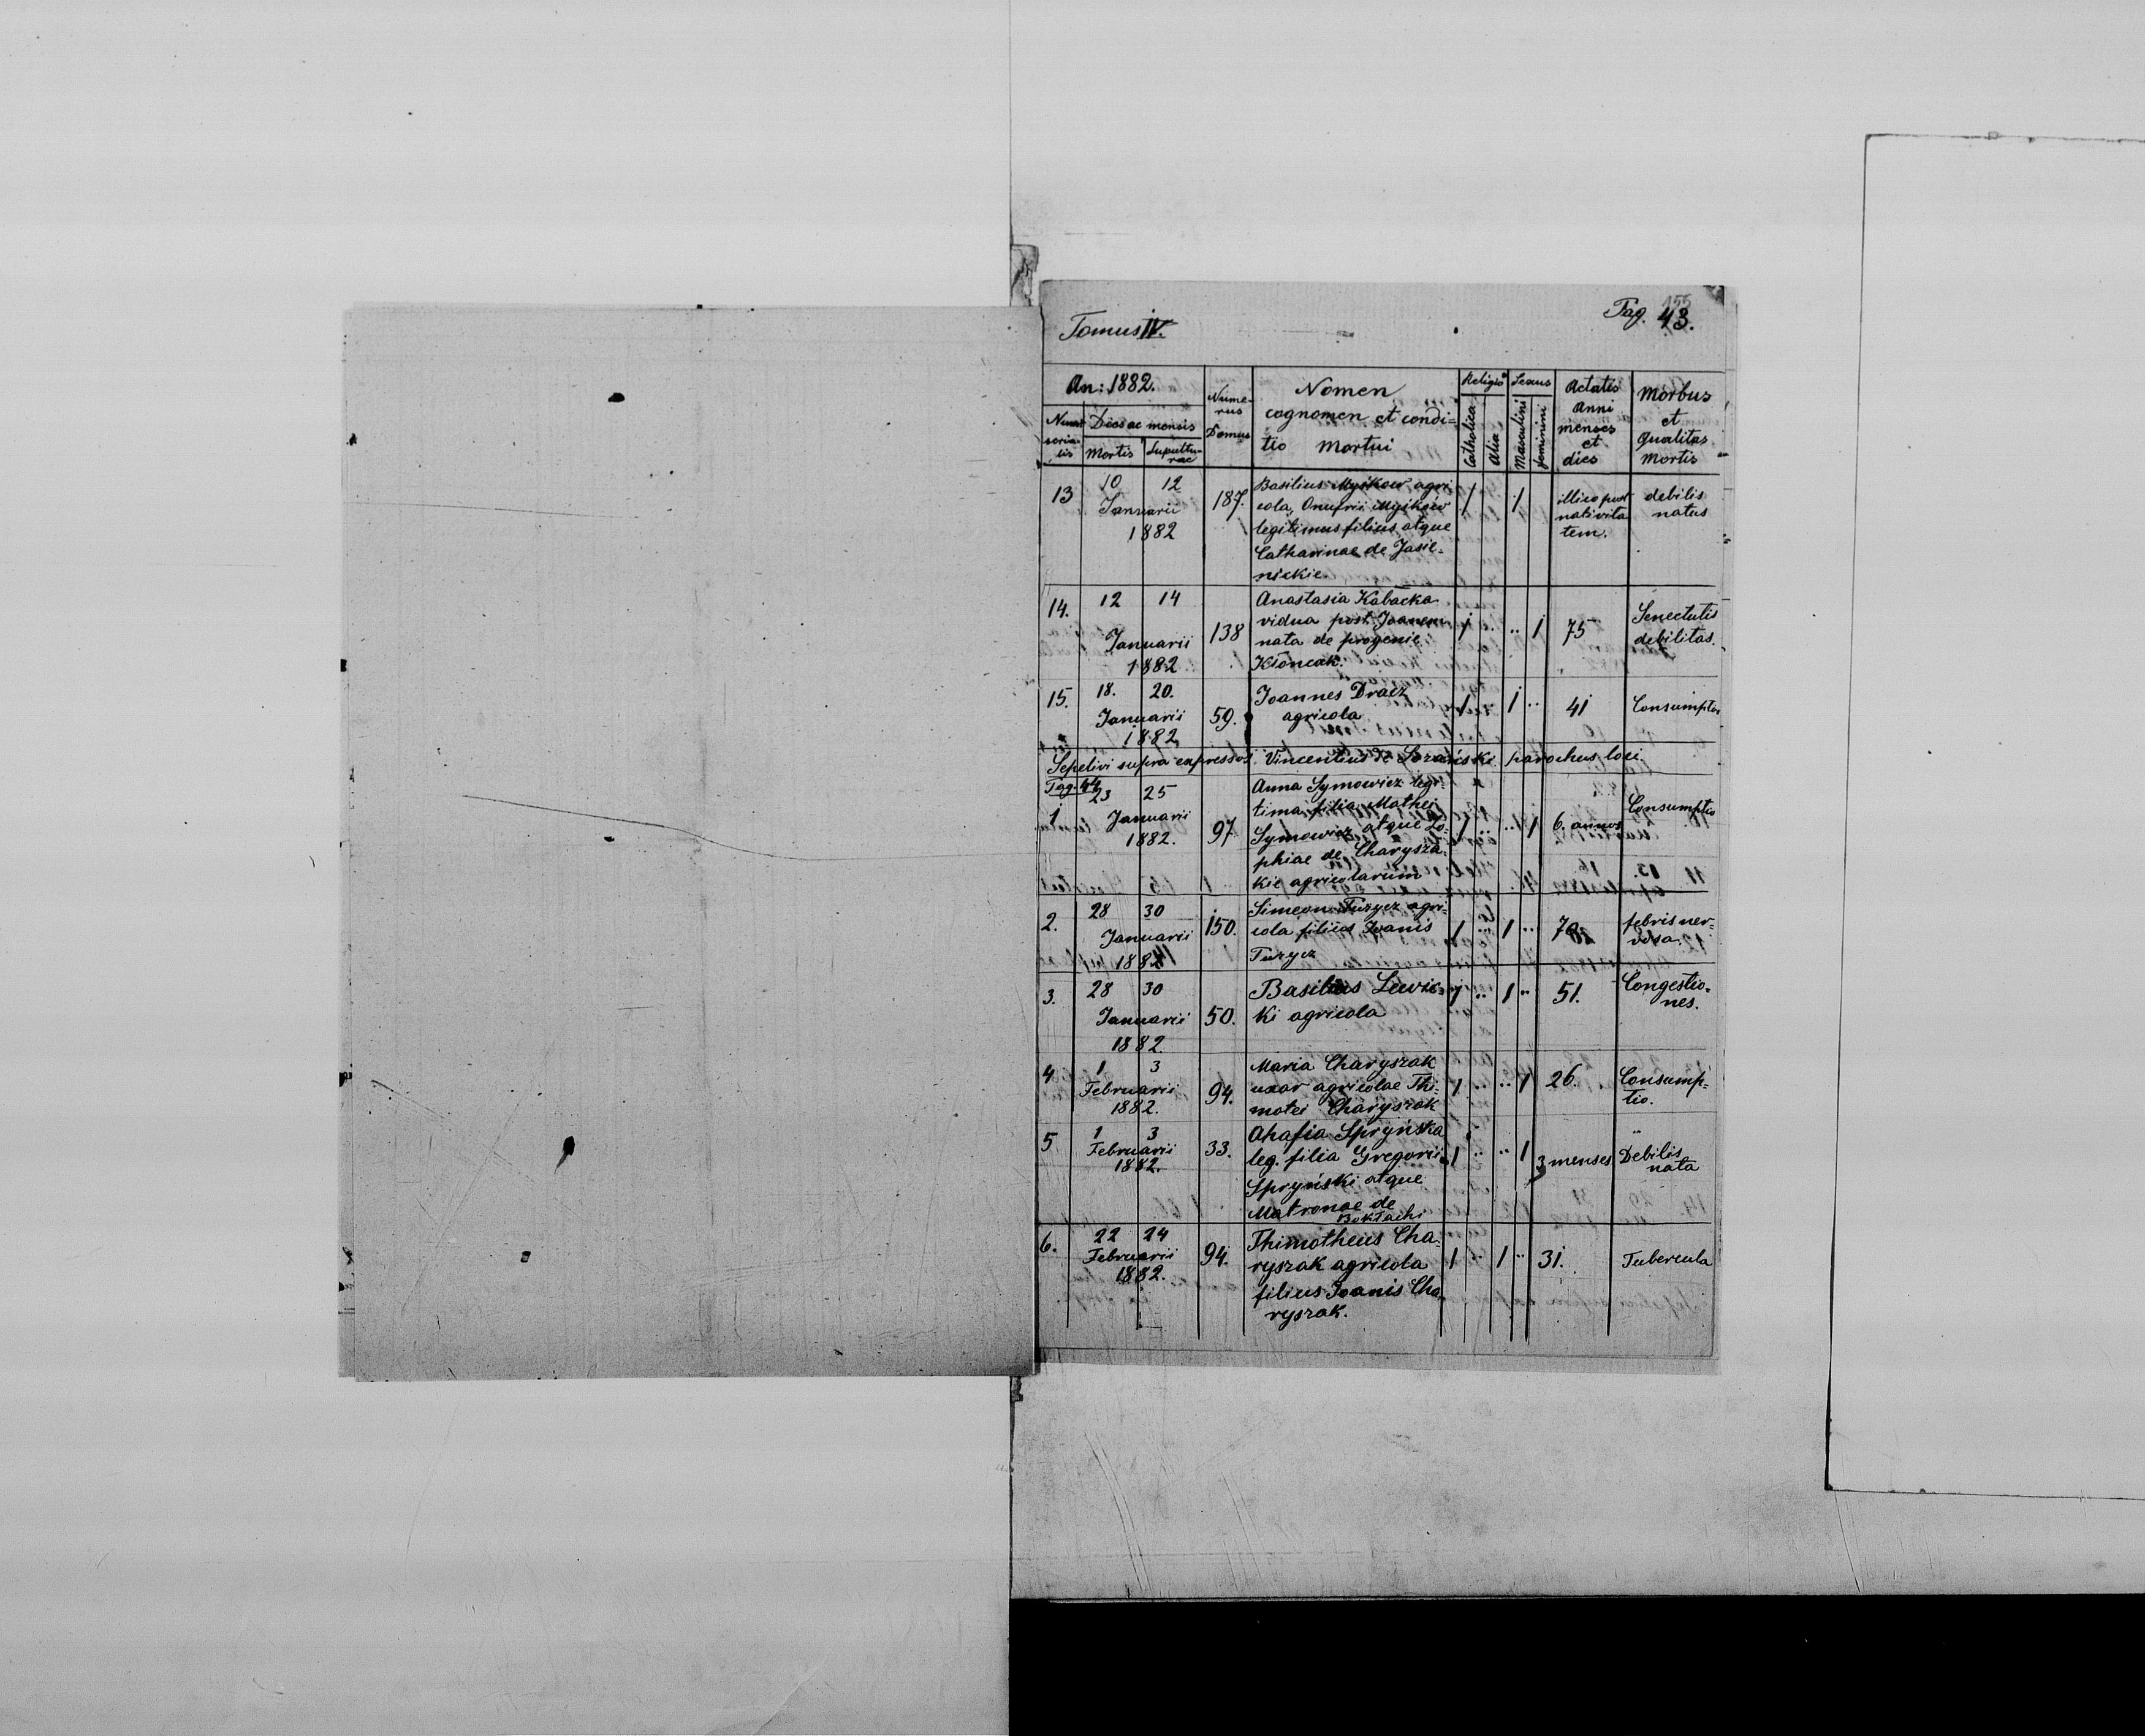 Tomus IV.
Pag. 43.
An: 1882.
Numerus Domus
Nomen
cognomen et condi-
tio Mortui
Religio
Catholica
Alia
Sexus
Masculini
feminini
Aetatis
Anni
menses
et
dies
Morbus
et
Qualitas
Mortis
Dies ac mensis
Mortis
13 10 12
Januarii
1882
187.
Basilius Myśkow agri
cola, Onufrii Myśków
legitimus filius atque
Catharinae de Jasie-
nickie.
1 1
illico post
nativita
tem.
debilis
natus
14. 12 14
Januarii
1882
138
Anastasia Kabacka
vidua post Joanem
nata de progenie
1 .. .. 1 75
Senectutis
debilitas.
15. 18. 20.
Januarii
1882
59.
Joannes Dracz
agricola
1 .. 1 .. 41
Sepelivi supra expressos. Vincentius parochus loci.
Pag. 44
1 23 25
Januarii
1882.
97
Anna Symowicz legi-
tima filia Mathei
Symowicz atque So-
phiae de Charysza-
kie agricolarum
1 .. .. 1 6. annos
Consumptio
2. 28 30
Januarii
150.
Simeon Turycz agri-
cola filius Joanis
Turycz
1 .. 1 ..
febris ner-
vosa.
3. 28 30
Januarii
1882.
50.
Basilius Lewic-
ki agricola
1 .. 1 .. 51.
Congestio-
nes.
4 1 3
Februarii
1882.
94.
Maria Charyszak
uxor agricolae Thi-
motei Charyszak
1 .. .. 1 26.
Consump-
tio.
5 1 3
Februarii
1882.
33.
Ahafia Spryńska
leg. filia Gregorii
Spryński atque
Matronae de
1 .. .. 1 3 menses
Debilis
nata
6. 22 24
Februarii
1882.
94.
Thimotheus Cha-
ryszak agricola
filius Joanis Cha
ryszak.
1 .. 1 .. 31.
Tubercula